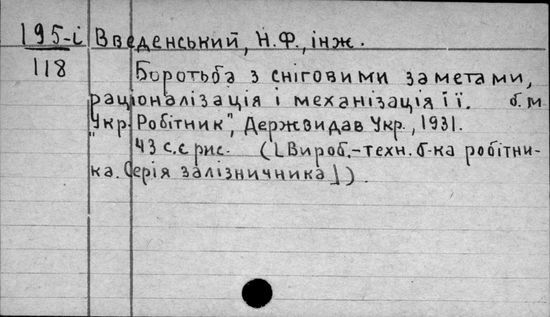 195-і Введенський, Н.Ф., інж.
118 Боротьба з сніговими заметами,
раціоналізація і механізація її. б.м
"Укр. Робітник", Держвидав Укр., 1931.
43 с.є рис. ([Вироб.-техн. б-ка робітни-
ка. Серія залізничника])